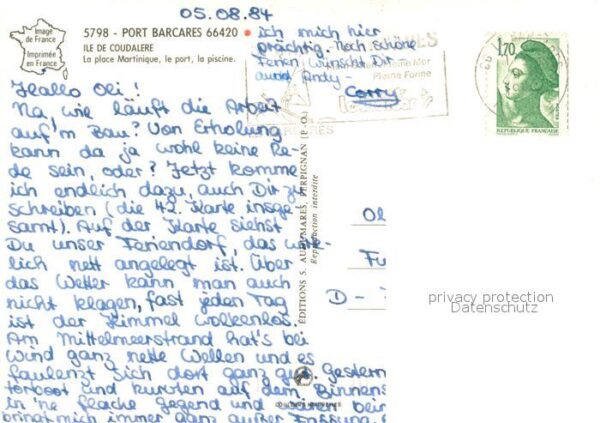 05.08.84
Image
de France
Imprimée
en France
5798 - PORT BARCARES 66420
ILE DE COUDALERE
La place Martinique, le port, la piscine.
Hallo Oli!
Na, wie läuft die Arbeit
auf'm Bau? Von Erholung
kann da ja wohl keine Re-
de sein, oder? Jetzt komme
ich endlich dazu, auch Dir zu
schreiben (die 42. Karte insge-
samt). Auf der Karte siehst
Du unser Feriendorf, das wirk-
lich nett angelegt ist. Über
das Wetter kann man auch
nicht klagen, fast jeden Tag
ist der Himmel wolkenlos.
Am Mittelmeerstrand hat's bei
Wind ganz nette Wellen und es
faulenzt sich dort ganz gut. Gestern
torboot und kurvten auf dem Binnens
in 'ne flache Gegend und
bringt mich immer ganz außer Fassung.
ich mich hier
prächtig. Noch schöne
Ferien wünscht Dir
Andy-
Conny
Pleine Forme
BARCARES
1,70
REPUBLIQUE FRANÇAISE
EDITIONS S. AUDUMARES, PERPIGNAN (P.-O.)
Reproduction interdite
Ol
Fu
D -
privacy protection
Datenschutz